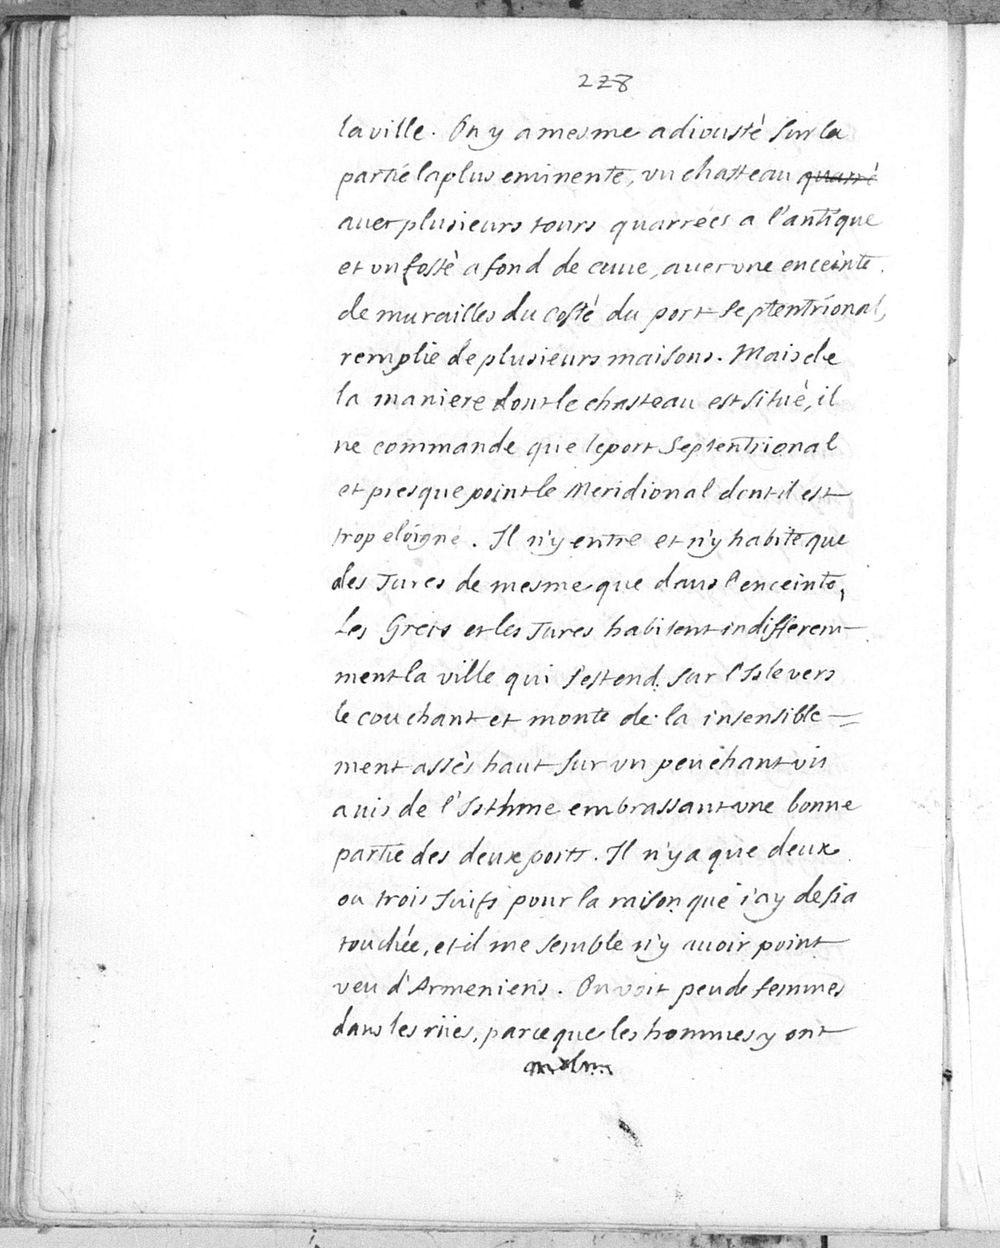 228
la ville. On y a mesme adiousté sur la
partie la plus eminente, vn chasteau quarré
auec plusieurs tours quarrées a l'antique
et vn fossé a fond de cuue, auec vne enceinte
de murailles du costé du port Septentrional,
remplie de plusieurs maisons. Mais de
la maniere dont le chasteau est situé, il
ne commande que le port Septentrional
et presque point le Meridional dont il est
trop eloigné. Il n'y entre et n'y habite que
des Turcs de mesme que dans l'enceinte,
Les Grecs et les Turcs habitent indifferem-
ment la ville qui s'estend sur l'Isle vers
le couchant et monte de la insensible=
ment assès haut sur vn penchant vis
a vis de l'Isthme embrassant vne bonne
partie des deux ports. Il n'y a que deux
ou trois Juifs pour la raison que i'ay desia
touchée, et il me semble n'y auoir point
veu d'Armeniens. On voit peu de femmes
dans les rües, parce que les hommes y ont